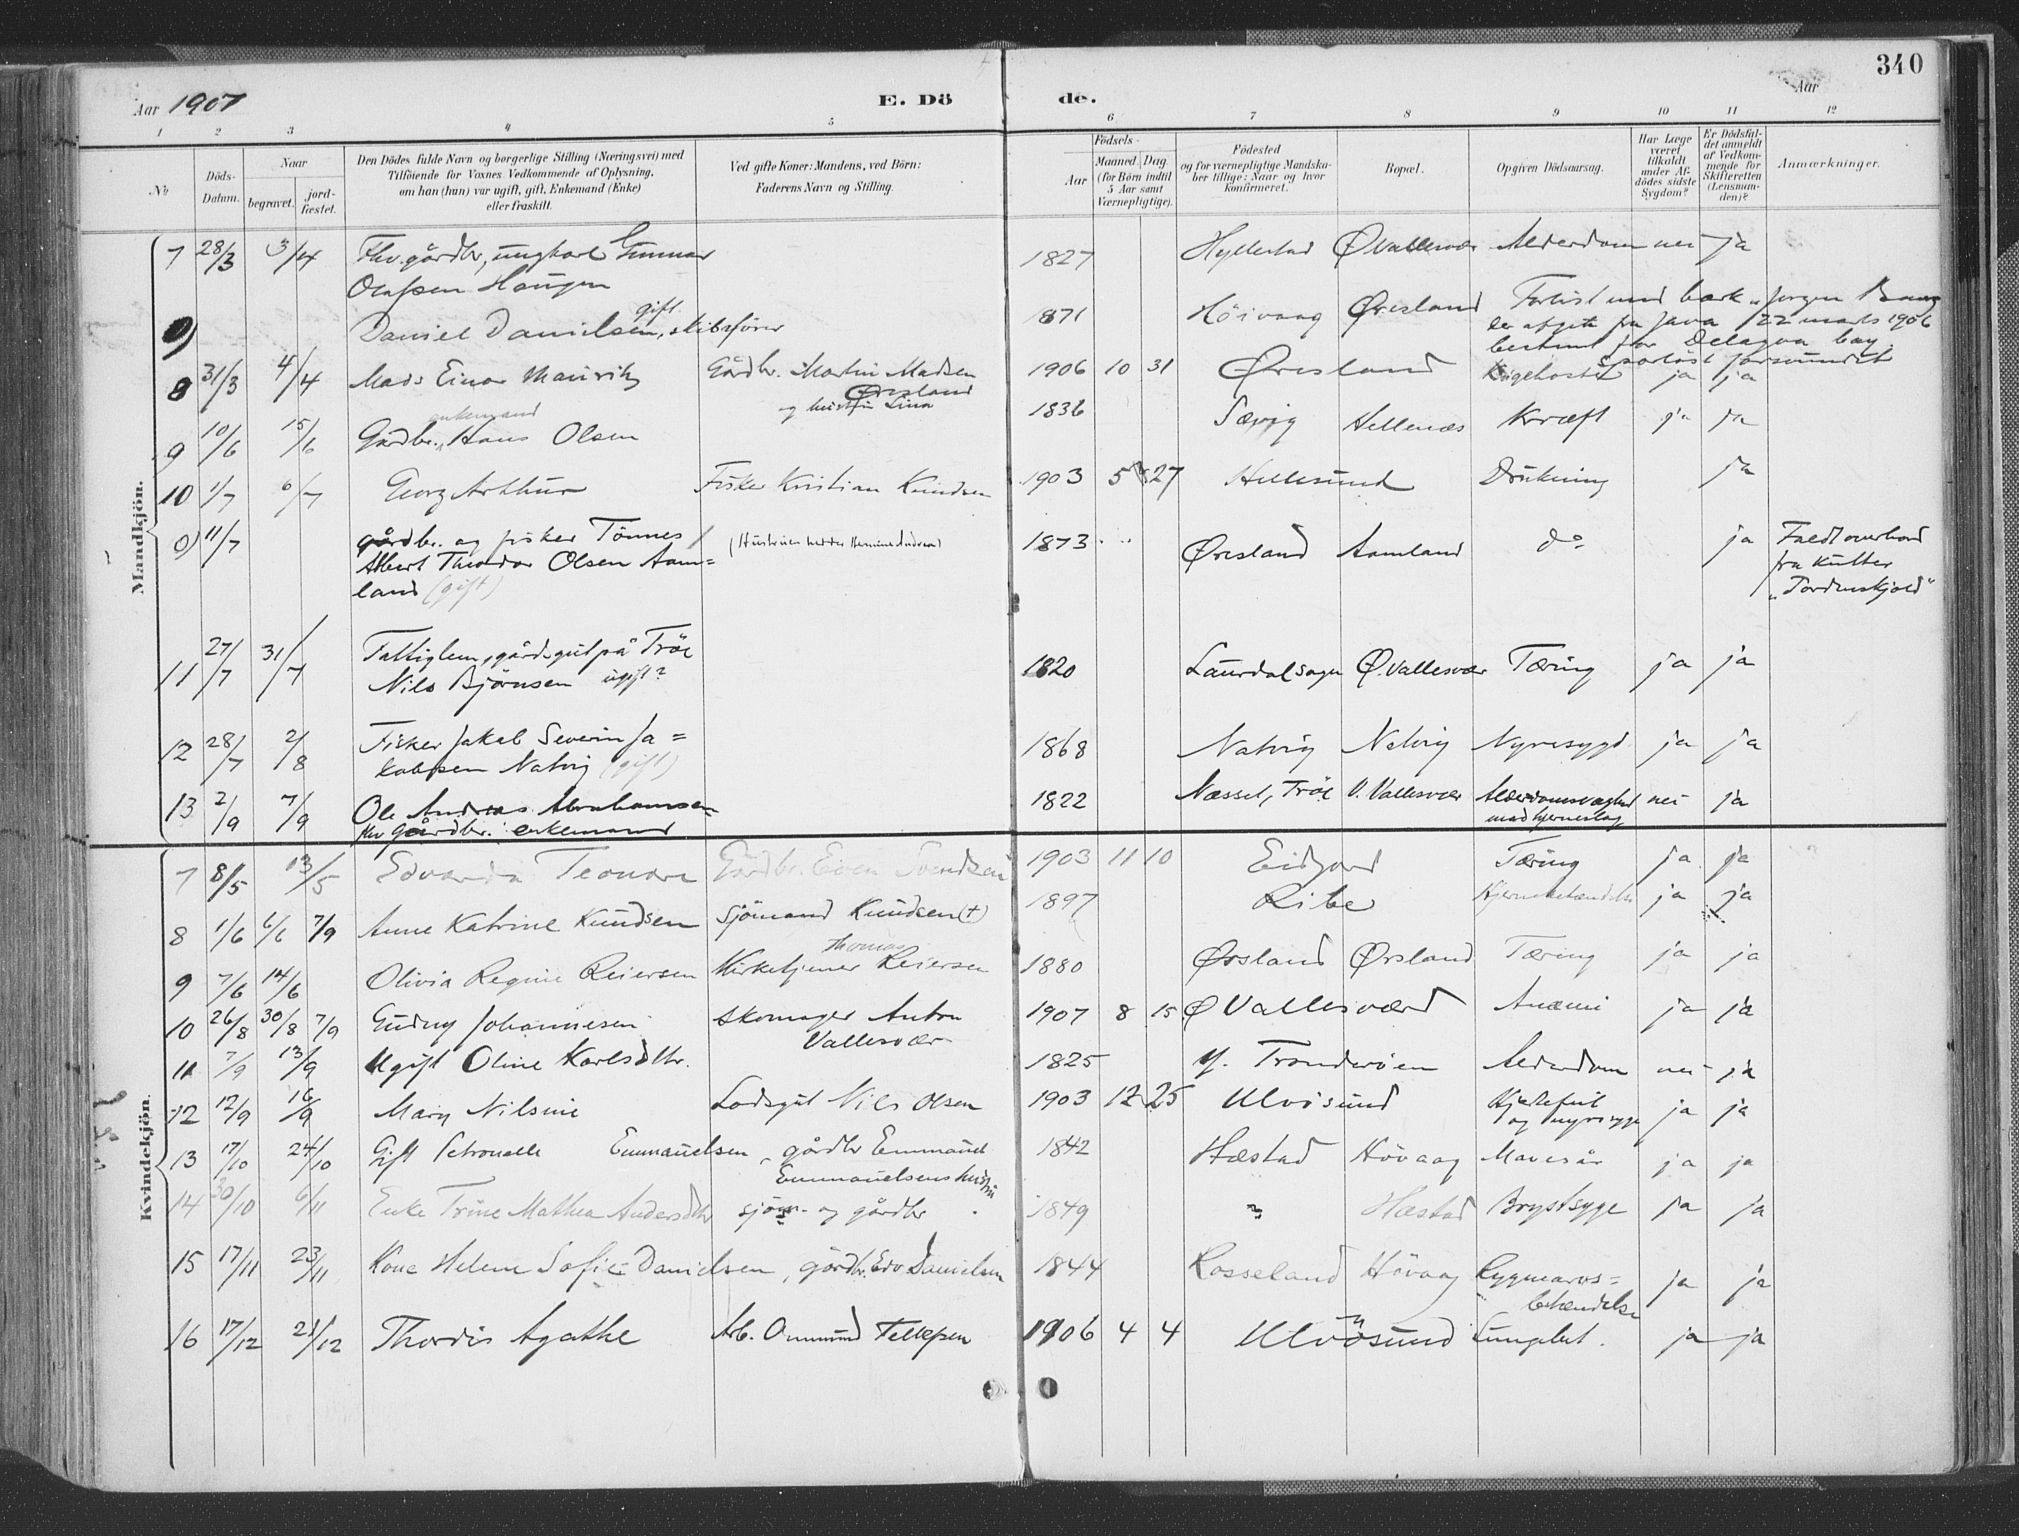 340
Aar 1907 E. Döde. Aar
1 2 3 4 5 6 7 8 9 10 11 12
№ Döds-Datum. Naar begravet. jordfæstet. Den Dödes fulde Navn og borgerlige Stilling (Næringsvei) med Tilföiende for Voxnes Vedkommende af Oplysning, om han (hun) var ugift, gift, Enkemand (Enke) eller fraskilt. Ved gifte Koner: Mandens, ved Börn: Faderens Navn og Stilling. Födsels- Aar Maaned. Dag (for Börn indtil 5 Aar samt Værnepligtige). Födested og for værnepligtige Mandskaber tillige: Naar og hvor konfirmeret. Bopæl. Opgiven Dödsaarsag. Har Læge været tilkaldt under Afdödes sidste Sygdom? Er Dödsfaldet anmeldt af Vedkommende for Skifteretten (Lensmanden)? Anmærkninger.
Mandkjön.
7 28/3 3/4 Fhv. gårdbr, ungkarl Gunnar 1827 Hyllestad Ø Vallesvær Alderdom nei ja
Olafsen Haugen
0) Daniel Danielsen, gift, skibsfører 1871 Höivaag Øresland Forlist med bark „Jørgen Bang
er afgik fra Java 22 marts 1906
bestemt for Delagoa bay.
Sporløst forsvundet
8 31/3 4/4 Mads Einar Mauritz Gårdbr. Martin Madsen 1906 10 31 Øresland Kigehoste ja ja
Øresland
og hustru Lina
9 10/6 15/6 Gårdbr. enkemand Hans Olsen 1836 Sævig Hellenæs Kræft ja ja
10 1/7 6/7 Georg Arthur Fisker Kristian Knudsen 1903 5 27 Hellesund Drukning ja
0) 11/7 gårdbr. og fisker Tönnes (Hustruen hedder Hermine Andrea) 1873 Øresland Aamland do ja Faldt overbord
Albert Theodor Olsen Aam= fra Kutter
land (gift) „Tordenskjold“
11 27/7 31/7 Fattiglem, gårdsgut på Tröe 1820 Laurdal sogn Ø. Vallesvær Tæring ja ja
Nils Björnsen ugift?
12 28/7 2/8 Fisker Jakob Severin Ja= 1868 Natvig Natvig Nyresygd. ja ja
kobsen Natvig (gift)
13 2/9 7/9 Ole Andreas Abrahamsen 1822 Næsset, Tröe V. Vallesvær Alderdomssvaghed nei ja
fhv gårdbr. enkemand med hjerneslag
Kvindekjön.
7 8/5 13/5 Edvarda Leonore Gårdbr. Even Svendsen 1903 11 10 Eidjord Tæring ja ja
8 1/6 6/6 7/9 Anne Katrine Knudsen Sjömand Knudsen (+) 1897 Ribe Hjernebetændelse ja ja
9 7/6 14/6 Olivia Regine Reiersen Kirketjener Thomas Reiersen 1880 Ørsland Ørsland Tæring ja ja
10 26/8 30/8 7/9 Gudny Johannesen Skomager Anton 1907 8 15 Ø Vallesværd Anæmi ja ja
Vallesvær
11 7/9 13/9 Ugift Oline Karlsdtr. 1825 Y. Tronderöen Alderdom nei ja
12 12/9 16/9 Mary Nilsine Lodsgut Nils Olsen 1903 12 25 Ulvösund Hjertefeil ja ja
og nyresyge
13 17/10 24/10 Gift Petronelle Emmauelsen, gårdbr Emmanuel 1842 Hæstad Hövaag Mavesår ja ja
Emmanuelsens hustru
14 30/10 6/11 Enke Trine Mathea Andersdtr sjöm- og gårdbr 1849 " Hæstad Brystsyge ja ja
15 17/11 23/11 Kone Helene Sofie Danielsen, gårdbr. Edv Danielsen 1844 Rosseland Hövaag Rygmarvs= ja ja
betændelse
16 17/12 21/12 Thordis Agathe Arb. Ommund Tellefsen 1906 4 4 Ulvösund Lungebet. ja ja